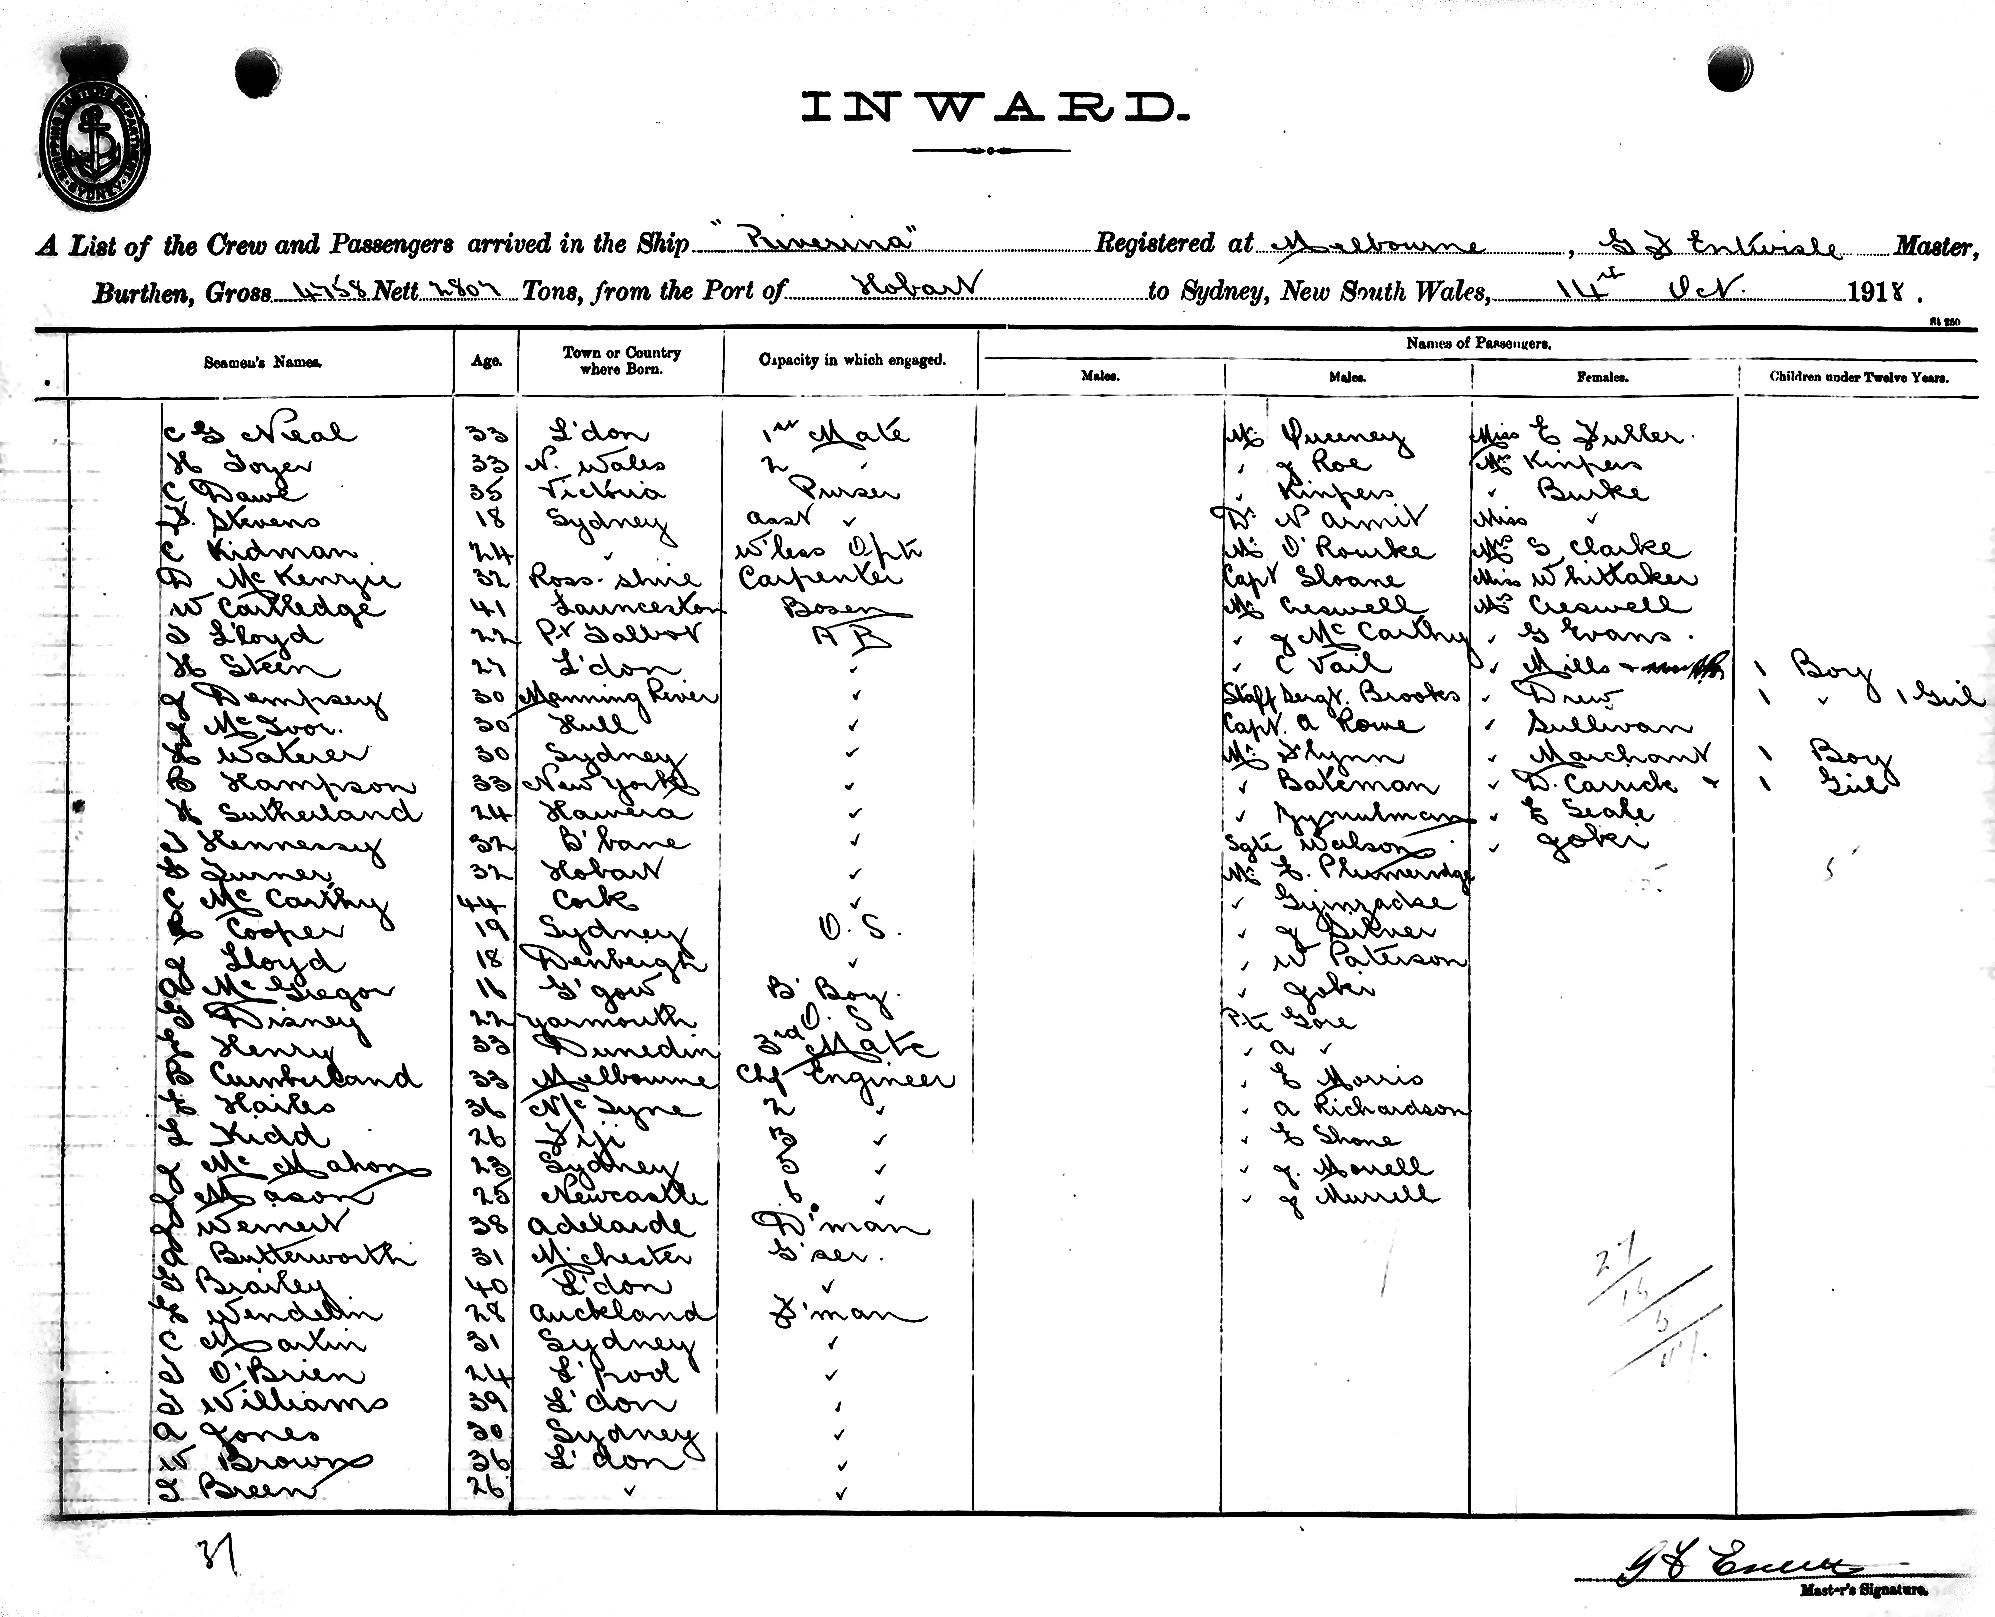 SHIPPING MASTER'S DEPARTMENT SYDNEY
INWARD.
A List of the Crew and Passengers arrived in the Ship "Riverina" Registered at Melbourne, G F Entwisle Master,
Burthen, Gross 4758 Nett 2807 Tons, from the Port of Hobart to Sydney, New South Wales, 14th Oct. 1918.
St 250
Names of Passengers.
Seamen's Names. Age. Town or Country where Born. Capacity in which engaged. Males. Males. Females. Children under Twelve Years.
C G Neal 33 L'don 1st Mate Mr Queeney Miss E Fuller.
H Foyer 33 N. Wales 2 " " J Roe Mrs Kinpers
C Dawe 35 Victoria Purser " Kinpers " Burke
F. Stevens 18 Sydney Asst " Dr N Armit Miss "
C Kidman 24 " W'less Optr Mr O'Rourke Mrs S Clarke
D McKenzie 32 Ross-shire Carpenter Capt Sloane Miss Whittaker
W Cartledge 41 Launceston Bosen Mr Creswell Mrs Creswell
T Lloyd 22 Pt Talbot A B " J McCarthy " G Evans.
H Steen 27 L'don " " C Vail " Mills 1 Boy
J Dempsey 30 Manning River " Staff Sergt. Brooks " Drew 1 " 1 Girl
J McIvor. 30 Hull " Capt. A Rowe " Sullivan
Waterer 30 Sydney " Mr Flynn " Marchant 1 Boy
B Hampson 33 New York " " Bateman " D. Carrick + 1 Girl
H Sutherland 24 Hawera " " " E Seale
T Hennessy 32 B'bane " Sgte Watson " Joki
Turner 32 Hobart " Mr E. Plumeridge 5
C McCarthy 44 Cork " "
Cooper 19 Sydney O.S. " J Silver
J Lloyd 18 Denbeigh " " W Paterson
A McGregor 16 G'gow B'Boy. " Joki
G Disney 22 Yarmouth O.S Pte Gore
Henry 33 Dunedin 3rd Mate " A "
B Cumberland 33 Melbourne Chf Engineer " E Morris
E Hailes 36 N/c Tyne 2 " " A Richardson
L Kidd 26 Fiji 3 " " E Shone
J McMahon 23 Sydney 5 " " J. Morrell
J Mason 25 Newcastle 6 " " J Murrell
J Wernert 38 Adelaide D'man
A Butterworth 31 M'chester G'ser.
G Brailey 40 L'don "
E Wendelin 28 Auckland F'man
C Martin 31 Sydney "
T O'Brien 24 L'pool "
T Williams 39 L'don "
A Jones 30 Sydney "
W Brown 36 L'don "
T Breen 26 " "
27
15
5
37
Master's Signature.